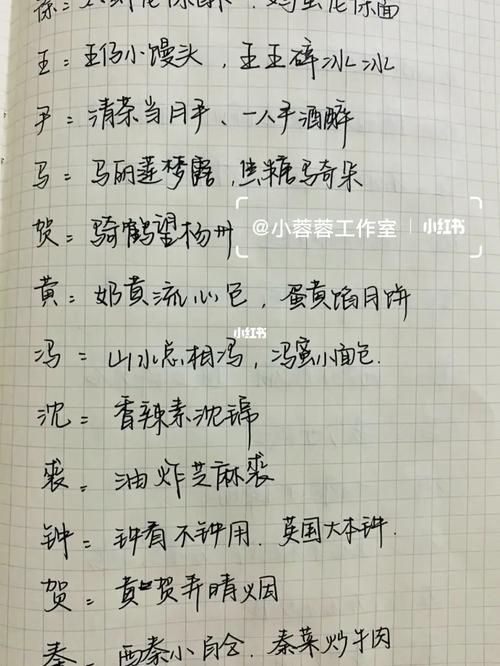 王:王仔小馒头,王王碎冰冰
尹:清茶当月尹、一人尹酒醉
马:马丽莲梦露,焦糖马奇朵
贺:骑鹤望杨州
@小蓉蓉工作室 小红书
黄:奶黄流心包,蛋黄馅月饼
小红书
冯:山水总相冯,冯蜜小面包.
沈:香辣素沈锦
裘:油炸芝麻裘
钟:钟看不钟用.英国大本钟.
贺:黄贺弄晴烟
秦:西秦小自含.秦菜炒牛肉